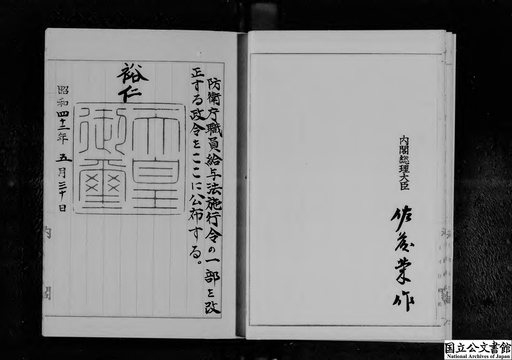 防衛庁職員給与法施行令の一部を改
正する政令をここに公布する。
裕仁
天皇
御璽
昭和四十三年五月三十日
内閣総理大臣
佐藤榮作
内閣
国立公文書館
National Archives of Japan